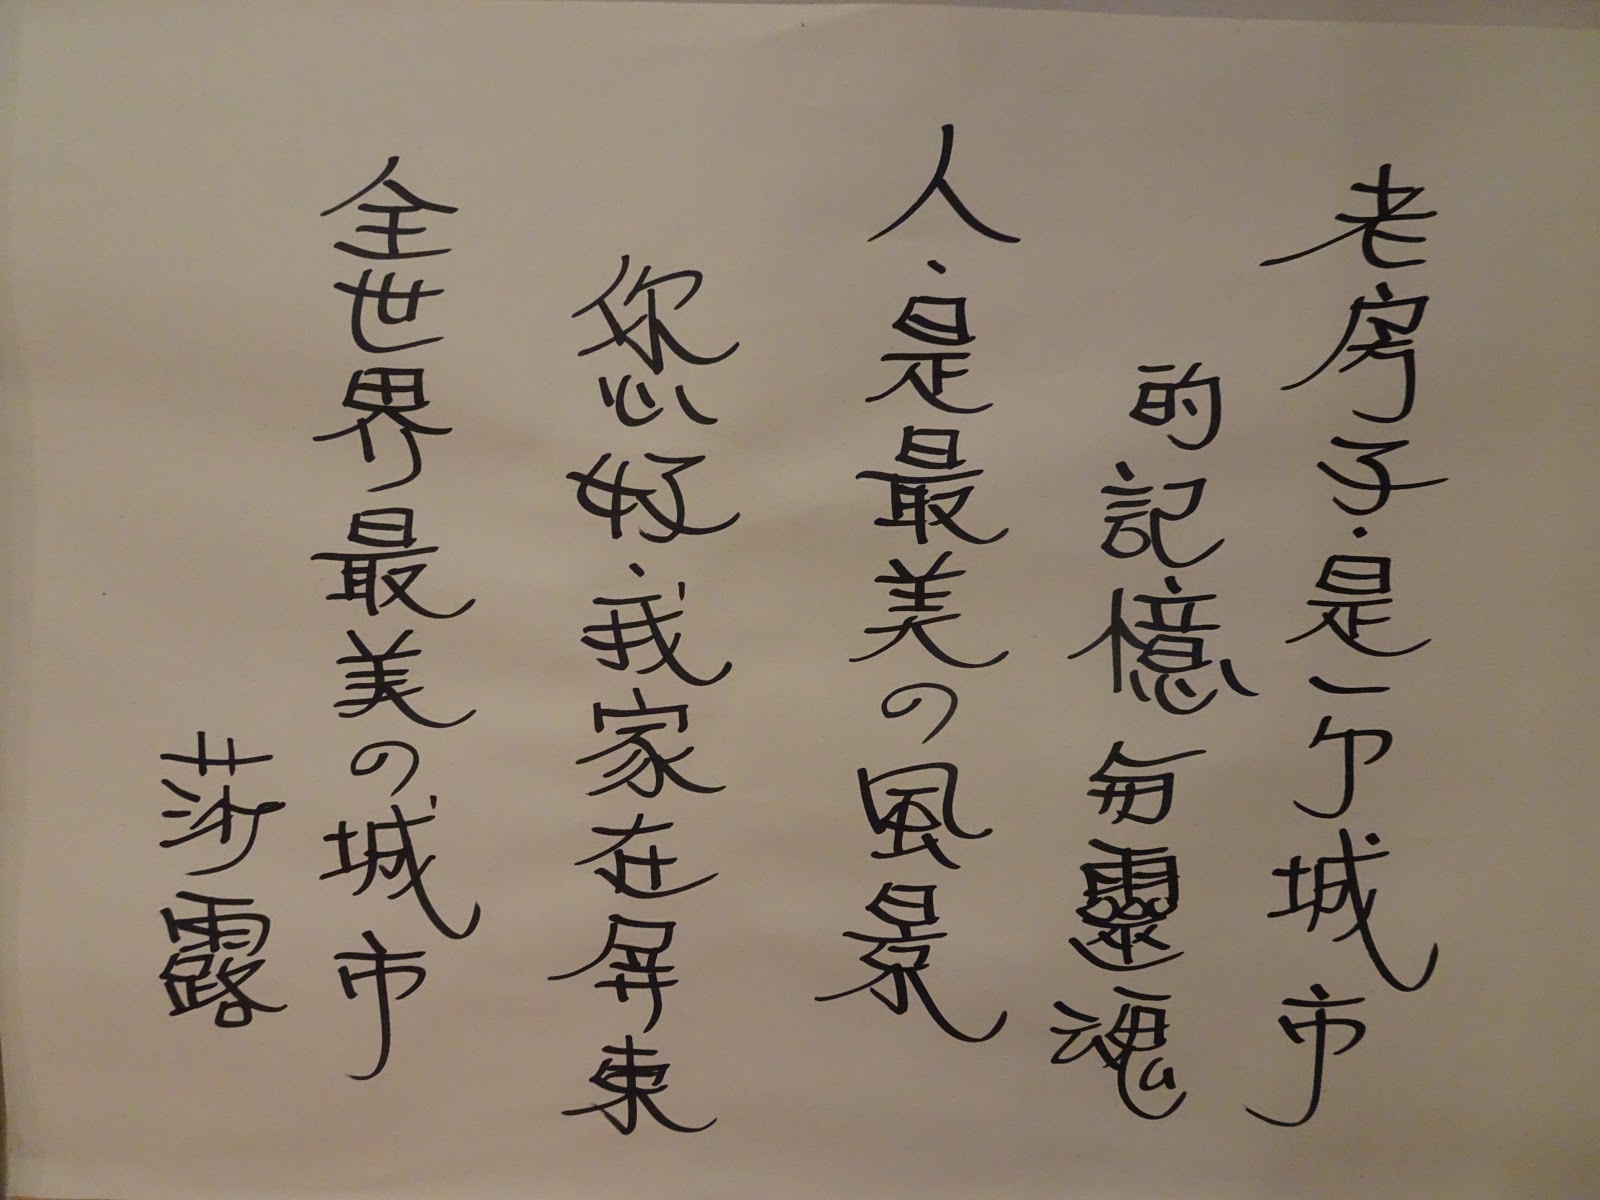 老房子·是一亇城市
的記憶每靈魂
人·是最美の風景
您好·我家在屏東
全世界最美の城市
莎露